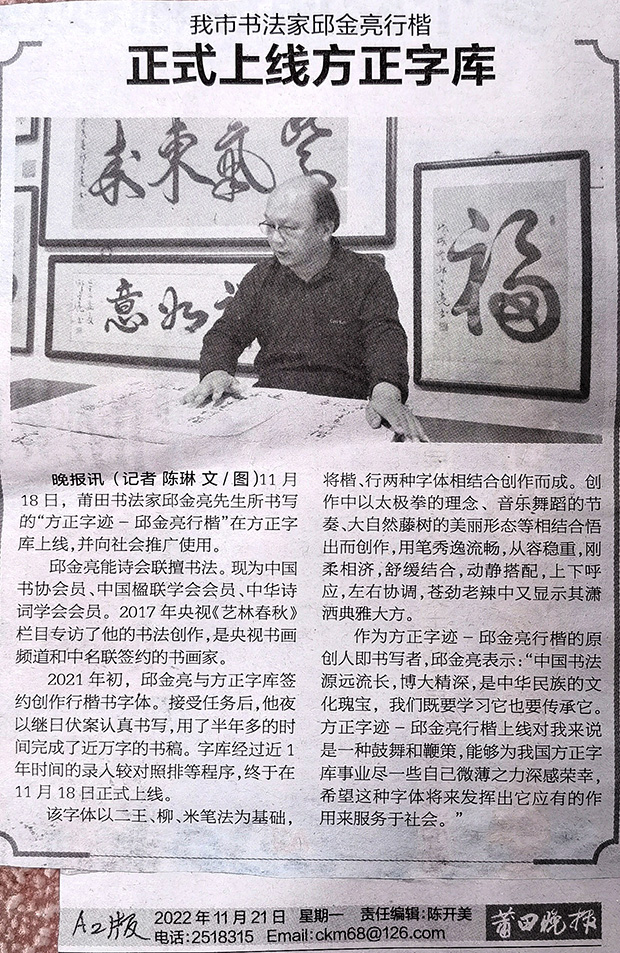 我市书法家邱金亮行楷
正式上线方正字库
紫气东来
福
如意
晚报讯（记者 陈琳 文/图）11月
18日，莆田书法家邱金亮先生所书写
的“方正字迹－邱金亮行楷”在方正字
库上线，并向社会推广使用。
邱金亮能诗会联擅书法。现为中国
书协会员、中国楹联学会会员、中华诗
词学会会员。2017年央视《艺林春秋》
栏目专访了他的书法创作，是央视书画
频道和中名联签约的书画家。
2021年初，邱金亮与方正字库签
约创作行楷书字体。接受任务后，他夜
以继日伏案认真书写，用了半年多的时
间完成了近万字的书稿。字库经过近1
年时间的录入较对照排等程序，终于在
11月18日正式上线。
该字体以二王、柳、米笔法为基础，
将楷、行两种字体相结合创作而成。创
作中以太极拳的理念、音乐舞蹈的节
奏、大自然藤树的美丽形态等相结合悟
出而创作，用笔秀逸流畅，从容稳重，刚
柔相济，舒缓结合，动静搭配，上下呼
应，左右协调，苍劲老辣中又显示其潇
洒典雅大方。
作为方正字迹－邱金亮行楷的原
创人即书写者，邱金亮表示：“中国书法
源远流长，博大精深，是中华民族的文
化瑰宝，我们既要学习它也要传承它。
方正字迹－邱金亮行楷上线对我来说
是一种鼓舞和鞭策，能够为我国方正字
库事业尽一些自己微薄之力深感荣幸，
希望这种字体将来发挥出它应有的作
用来服务于社会。”
A2版
2022年11月21日 星期一 责任编辑：陈开美
电话：2518315 Email:ckm68@126.com
莆田晚报